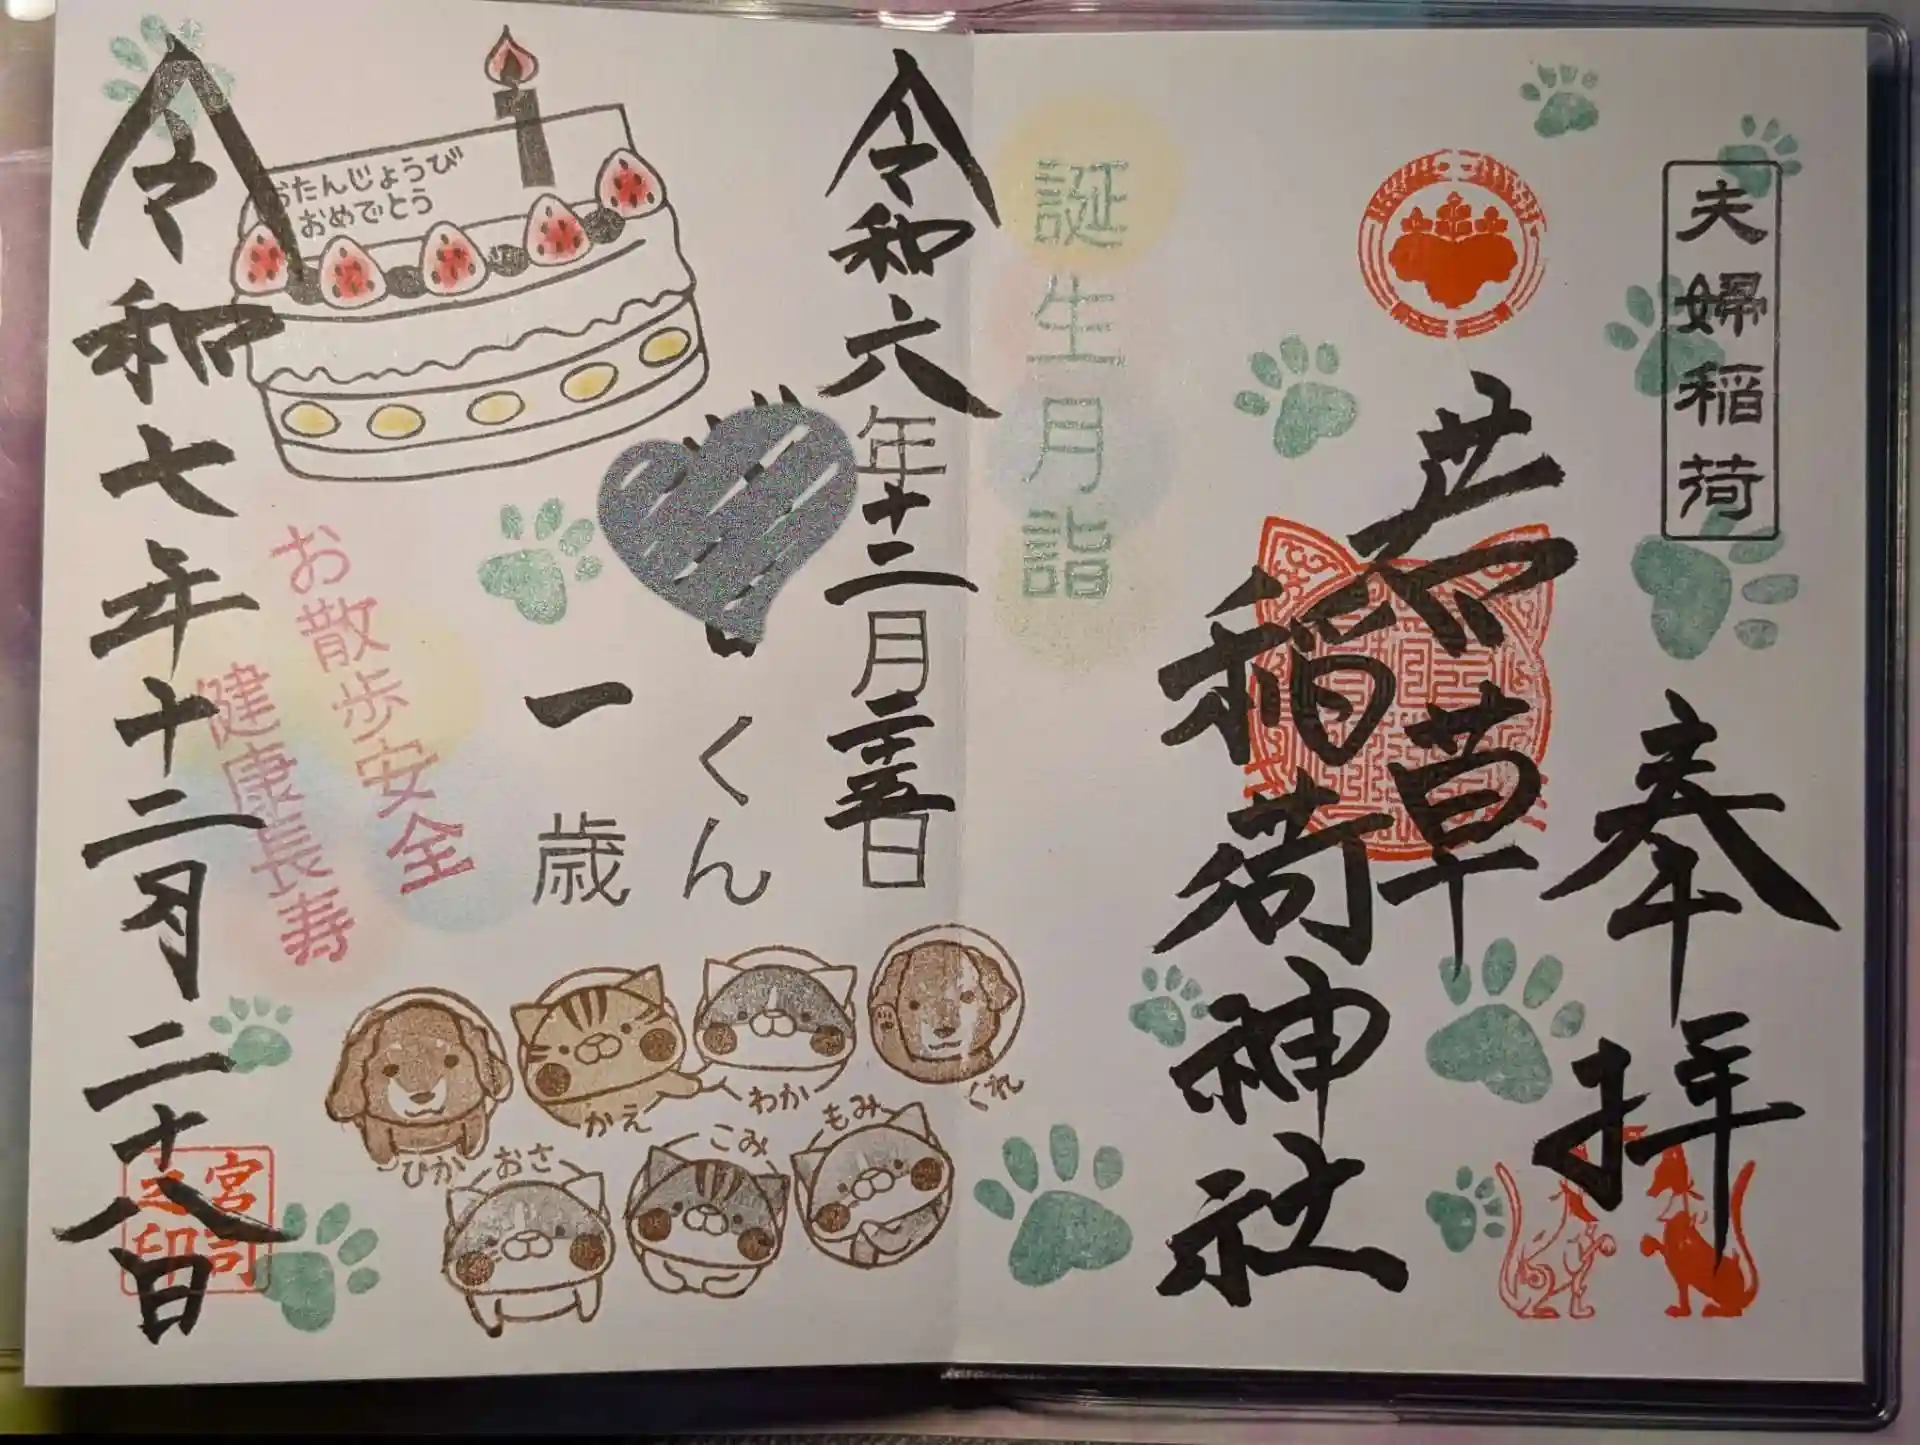 夫婦稲荷
奉拝
荒草
稲荷神社
誕生月詣
令和六年十二月二十五日
くん
一歳
おたんじょうび
おめでとう
お散歩安全
健康長寿
令和七年十二月二十八日
宮司
之印
ひか
かえ
わか
くれ
おさ
こみ
もみ